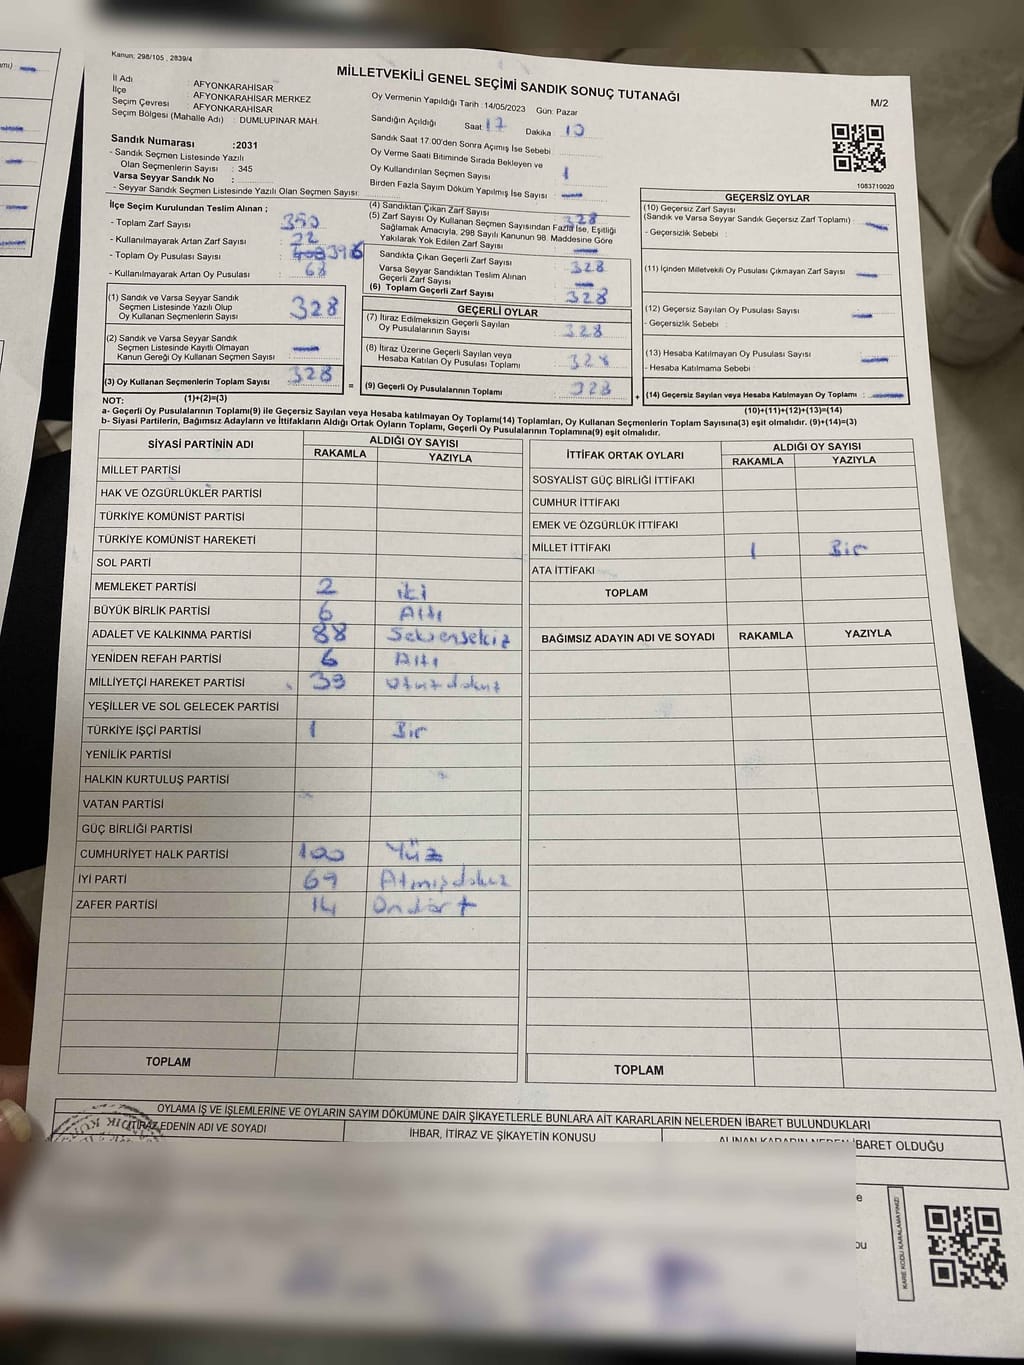 Kanun: 298/105 , 2839/4
MİLLETVEKİLİ GENEL SEÇİMİ SANDIK SONUÇ TUTANAĞI
M/2
İl Adı : AFYONKARAHİSAR
İlçe : AFYONKARAHİSAR MERKEZ
Seçim Çevresi : AFYONKARAHİSAR
Seçim Bölgesi (Mahalle Adı) : DUMLUPINAR MAH.
Oy Vermenin Yapıldığı Tarih :14/05/2023 Gün: Pazar
Sandığın Açıldığı Saat 17 Dakika 10
Sandık Saat 17.00'den Sonra Açımış İse Sebebi
Oy Verme Saati Bitiminde Sırada Bekleyen ve
Oy Kullandırılan Seçmen Sayısı 1
Birden Fazla Sayım Döküm Yapılmış İse Sayısı —
1083710020
Sandık Numarası :2031
- Sandık Seçmen Listesinde Yazılı
Olan Seçmenlerin Sayısı : 345
Varsa Seyyar Sandık No :
- Seyyar Sandık Seçmen Listesinde Yazılı Olan Seçmen Sayısı:
İlçe Seçim Kurulundan Teslim Alınan ;
- Toplam Zarf Sayısı : 350
- Kullanılmayarak Artan Zarf Sayısı : 22
- Toplam Oy Pusulası Sayısı : 396
- Kullanılmayarak Artan Oy Pusulası : 68
(1) Sandık ve Varsa Seyyar Sandık
Seçmen Listesinde Yazılı Olup
Oy Kullanan Seçmenlerin Sayısı 328
(2) Sandık ve Varsa Seyyar Sandık
Seçmen Listesinde Kayıtlı Olmayan
Kanun Gereği Oy Kullanan Seçmen Sayısı —
(3) Oy Kullanan Seçmenlerin Toplam Sayısı 328
(4) Sandıktan Çıkan Zarf Sayısı 328
(5) Zarf Sayısı Oy Kullanan Seçmen Sayısından Fazla İse, Eşitliği
Sağlamak Amacıyla, 298 Sayılı Kanunun 98. Maddesine Göre
Yakılarak Yok Edilen Zarf Sayısı —
Sandıkta Çıkan Geçerli Zarf Sayısı 328
Varsa Seyyar Sandıktan Teslim Alınan
Geçerli Zarf Sayısı —
(6) Toplam Geçerli Zarf Sayısı 328
GEÇERLİ OYLAR
(7) İtiraz Edilmeksizin Geçerli Sayılan
Oy Pusulalarının Sayısı 328
(8) İtiraz Üzerine Geçerli Sayılan veya
Hesaba Katılan Oy Pusulası Toplamı 328
= (9) Geçerli Oy Pusulalarının Toplamı 328
GEÇERSİZ OYLAR
(10) Geçersiz Zarf Sayısı
(Sandık ve Varsa Seyyar Sandık Geçersiz Zarf Toplamı) —
- Geçersizlik Sebebi :
(11) İçinden Milletvekili Oy Pusulası Çıkmayan Zarf Sayısı —
(12) Geçersiz Sayılan Oy Pusulası Sayısı : —
- Geçersizlik Sebebi :
(13) Hesaba Katılmayan Oy Pusulası Sayısı —
- Hesaba Katılmama Sebebi
+ (14) Geçersiz Sayılan veya Hesaba Katılmayan Oy Toplamı : —
NOT: (1)+(2)=(3)
(10)+(11)+(12)+(13)=(14)
a- Geçerli Oy Pusulalarının Toplamı(9) ile Geçersiz Sayılan veya Hesaba katılmayan Oy Toplamı(14) Toplamları, Oy Kullanan Seçmenlerin Toplam Sayısına(3) eşit olmalıdır. (9)+(14)=(3)
b- Siyasi Partilerin, Bağımsız Adayların ve İttifakların Aldığı Ortak Oyların Toplamı, Geçerli Oy Pusulalarının Toplamına(9) eşit olmalıdır.
SİYASİ PARTİNİN ADI
ALDIĞI OY SAYISI
RAKAMLA YAZIYLA
MİLLET PARTİSİ
HAK VE ÖZGÜRLÜKLER PARTİSİ
TÜRKİYE KOMÜNİST PARTİSİ
TÜRKİYE KOMÜNİST HAREKETİ
SOL PARTİ
MEMLEKET PARTİSİ 2 iki
BÜYÜK BİRLİK PARTİSİ 6 Altı
ADALET VE KALKINMA PARTİSİ 88 Seksensekiz
YENİDEN REFAH PARTİSİ 6 Altı
MİLLİYETÇİ HAREKET PARTİSİ 39 otuzdokuz
YEŞİLLER VE SOL GELECEK PARTİSİ
TÜRKİYE İŞÇİ PARTİSİ 1 Bir
YENİLİK PARTİSİ
HALKIN KURTULUŞ PARTİSİ
VATAN PARTİSİ
GÜÇ BİRLİĞİ PARTİSİ
CUMHURİYET HALK PARTİSİ 100 Yüz
İYİ PARTİ 69 Atmışdokuz
ZAFER PARTİSİ 14 Ondört
TOPLAM
İTTİFAK ORTAK OYLARI
ALDIĞI OY SAYISI
RAKAMLA YAZIYLA
SOSYALİST GÜÇ BİRLİĞİ İTTİFAKI
CUMHUR İTTİFAKI
EMEK VE ÖZGÜRLÜK İTTİFAKI
MİLLET İTTİFAKI 1 Bir
ATA İTTİFAKI
TOPLAM
BAĞIMSIZ ADAYIN ADI VE SOYADI RAKAMLA YAZIYLA
TOPLAM
OYLAMA İŞ VE İŞLEMLERİNE VE OYLARIN SAYIM DÖKÜMÜNE DAİR ŞİKAYETLERLE BUNLARA AİT KARARLARIN NELERDEN İBARET BULUNDUKLARI
İTİRAZ EDENİN ADI VE SOYADI
İHBAR, İTİRAZ VE ŞİKAYETİN KONUSU
ALINAN KARARIN NEDEN İBARET OLDUĞU
KARE KODU KARALAMAYINIZ!